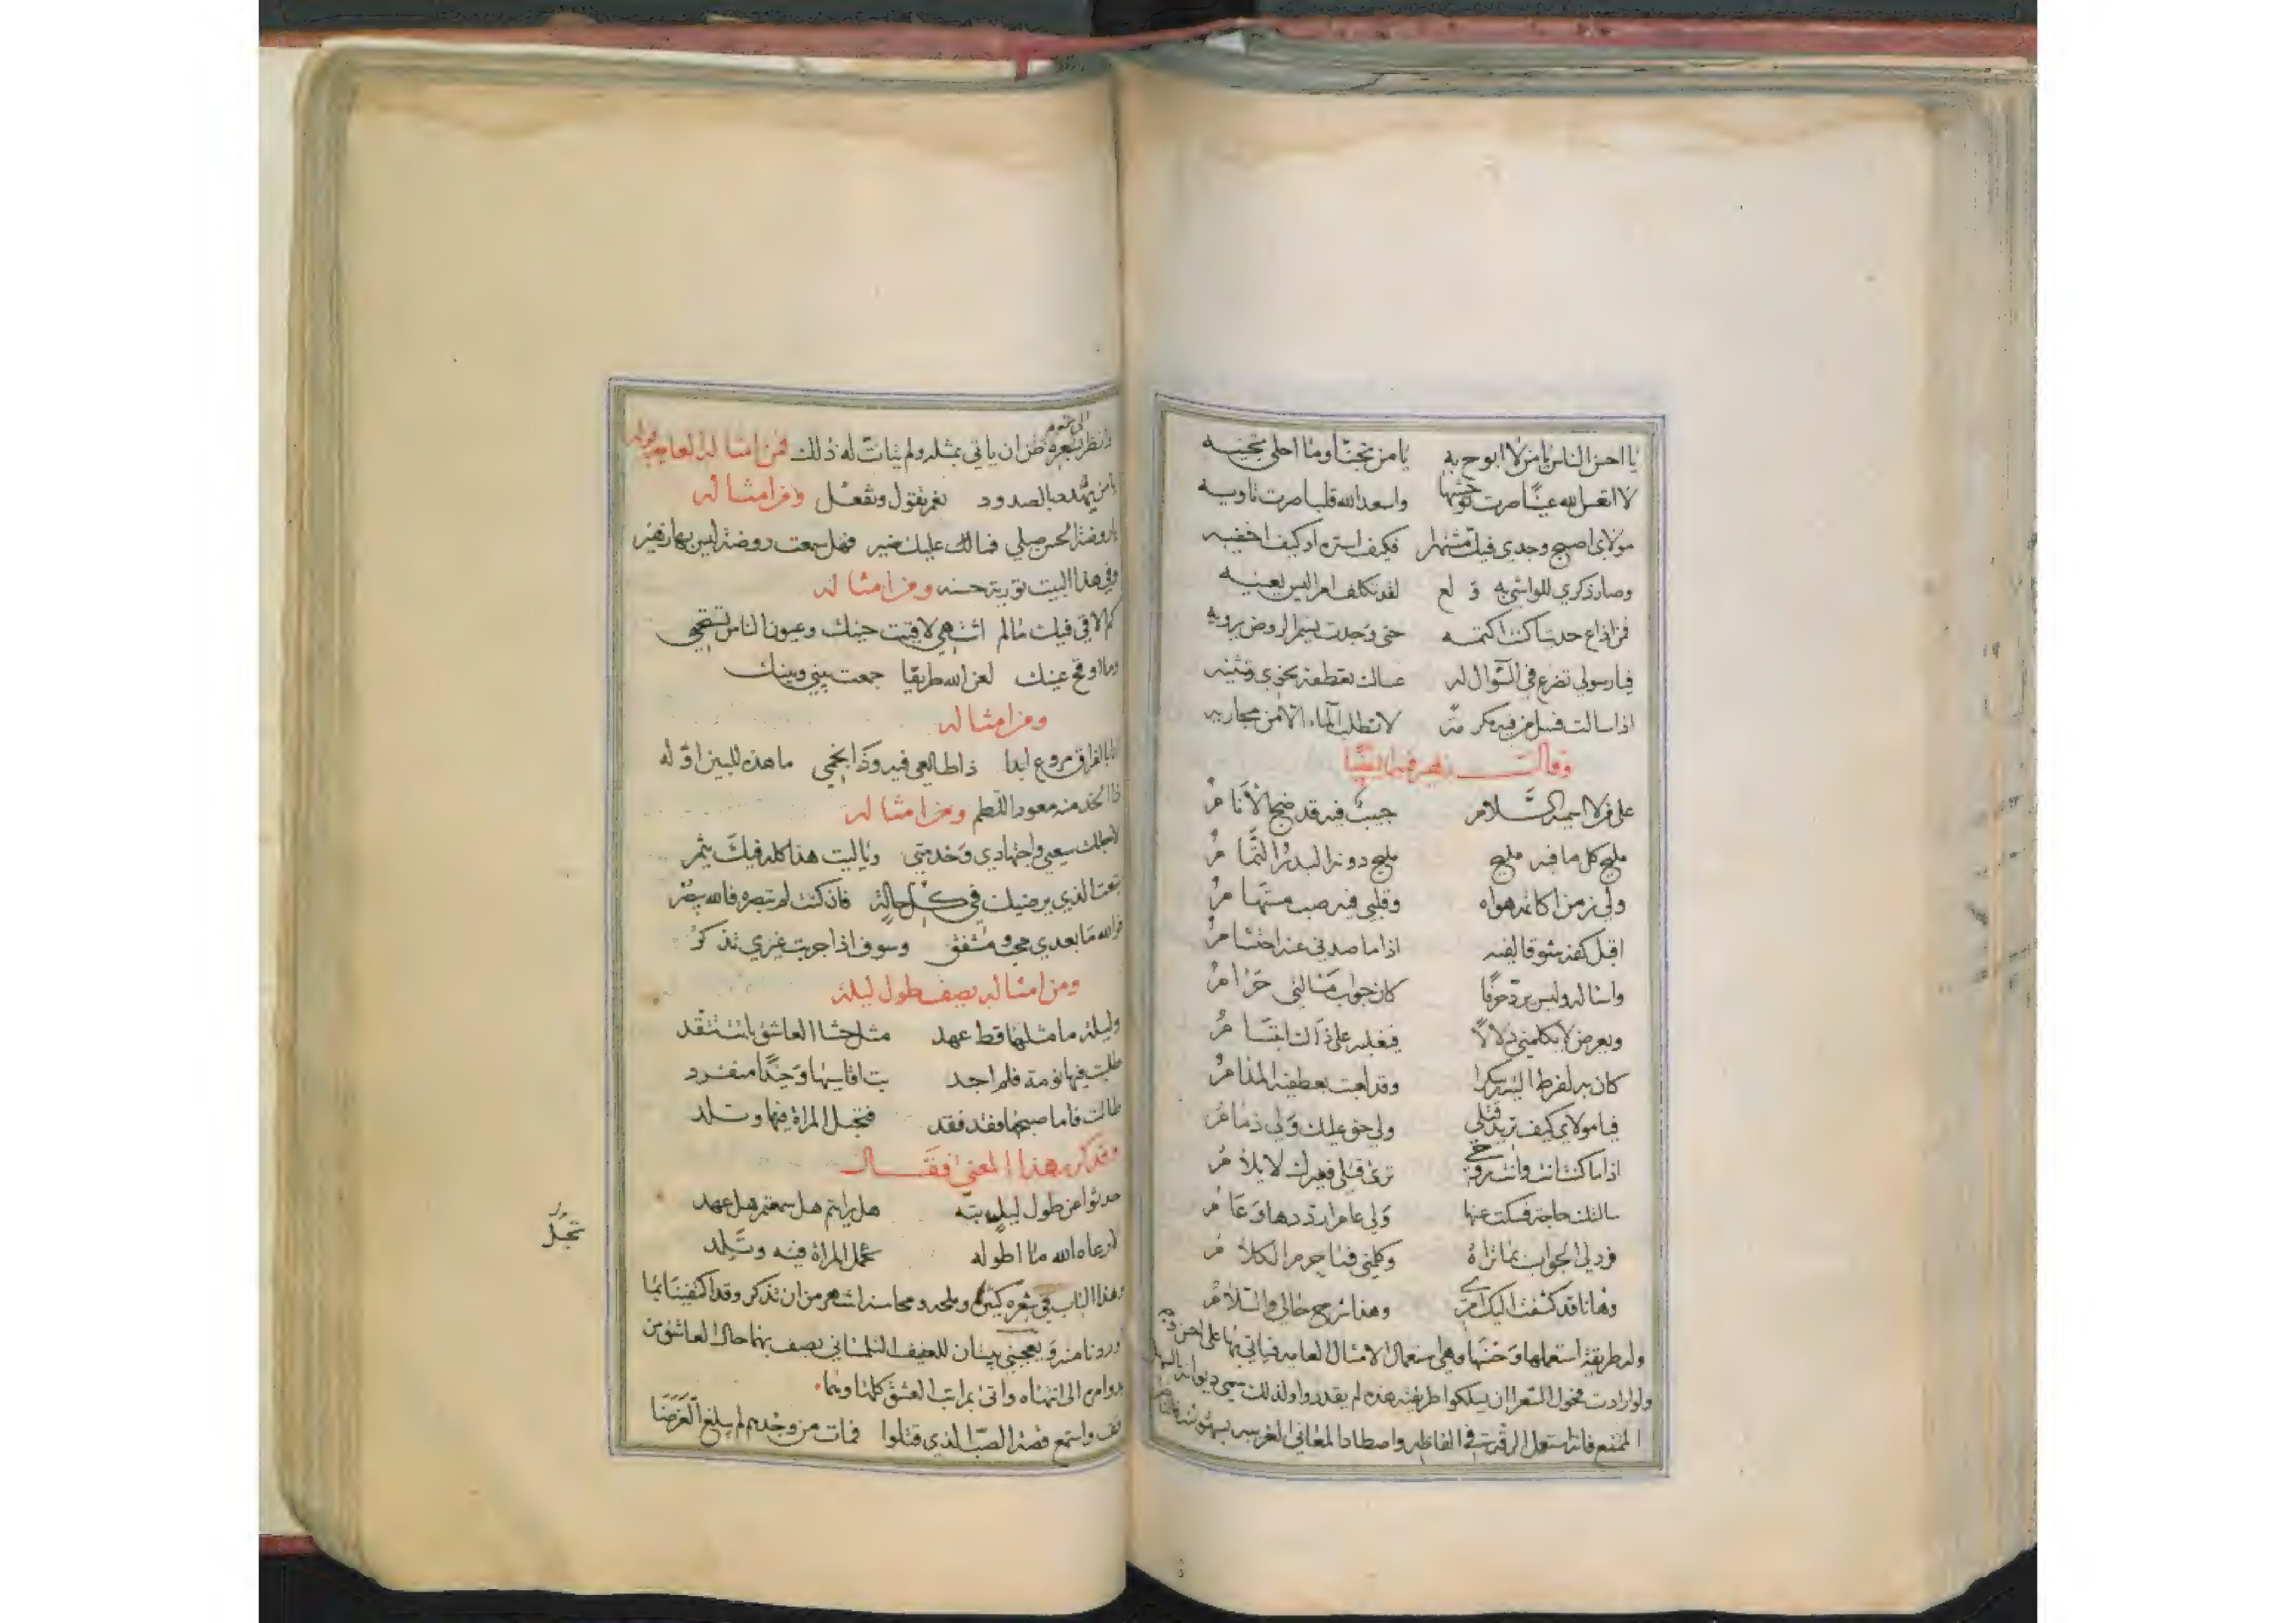 يا احسن الناس يا من لا ابوح به يا من تجنا وما احلى تجنيه
لا اتعس الله عينا صرت توحشها واسعد الله قلبا صرت تاويه
مولاي اصبح وجدي فيك مشتهرا فكيف استره او كيف اخفيه
وصار ذكري للواشي به ولع لقد تكلف امرا ليس يعنيه
فمن اذاع حديثا كنت اكتمه حتى وجدت نسيم الروض يرويه
فيا رسولي تضرع في السؤال له عساك تعطفه نحوي وتثنيه
اذا سالت فسل من فيه مكرمة لا تطلب الماء الا من مجاريه
وقال فيه ايضا
على من لا اسميه السلام حبيب فيه قد ضج الانام
مليح كل ما فيه مليح مليح دونه البدر التمام
ولي زمن اكاتمه هواه وقلبي فيه صب مستهام
اقبل كفه شوقا لفيه اذا ما صدني عنه احتشام
واساله وليس يرد حرفا كان جواب مسالتي حرام
ويعرض لا يكلمني دلالا فيغلبه على ذاك ابتسام
كان به لفرط التيه سكرا وقد لعبت بعطفيه المدام
فيا مولاي كيف تريد قتلي ولي حق عليك ولي ذمام
اذا ما كنت انت وانت روحي ترى قتلي فغيرك لا يلام
سالتك حاجة فسكت عنها ولي عام ارددها وعام
فرد لي الجواب بما تراه وكلمني فما حرم الكلام
وها انا قد كشفت اليك امري وهذا شرح حالي والسلام
وله طريقة استعملها وحسنها وهي استعمال الامثال العامه فياتي بها على احسن
ولو ارادت فحول الشعرا ان يسلكوا طريقته هذه لم يقدروا ولذلك سمي ديوانه بالسهل
الممتنع فانه استعمل الرقة في الفاظه واصطاد المعاني الغريبه بسهولة
وانظر شعره ظن ان ياتي بمثله ولم يتات له ذلك فمن امثاله العاميه قوله
يا من يهدد بالصدود نعم تقول وتفعل ومن امثاله
يا روضة الحسن صلي فما عليك ضير فهل سمعت روضة ليس بها زهير
وفي هذا البيت تورية حسنه ومن امثاله
كم الاقي فيك ما لم اشتهي لاقيت حينك وعيون الناس تستحي
وما اوقح عينك لعن الله طريقا جمعت بيني وبينك
ومن امثاله
بالفراق مروع ابدا ذا طالعي فيه وذا نجمي ما هذه للبين اوله
ذا الخد منه معود اللطم ومن امثاله
لاجلك سعيي واجتهادي وخدمتي ويا ليت هذا كله فيك يثمر
تبعت الذي يرضيك في كل حالة فان كنت لم تبصره فالله يبصر
فوالله ما بعدي محب ومشفق وسوف اذا جربت غيري تذكر
ومن امثاله يصف طول ليلة
وليلة ما مثلها قط عهد مثل حشا العاشق باتت تتقد
طلبت فيها نومة فلم اجد بت اقاسيها وحيدا منفرد
طالت فاما صبحها فقد فقد فتحبل المراة فيها وتلد
وقد كرر هذا المعنى فقال
حدثوا عن طول ليل بته هل رايتم هل سمعتم هل عهد
لا رعاه الله ما اطوله تحمل المراة فيه وتلد
تحبل
وهذا الباب في شعره كثير وملحه ومحاسنه اشهر من ان تذكر وقد اكتفينا بما
اوردنا منه ويعجبني بيتان للعفيف التلمساني يصف بهما حال العاشق من
الى انتهاه واتى بمراتب العشق كلها وهما
قف واستمع قصة الصب الذي قتلوا فمات من وجدهم لم يبلغ الغرضا